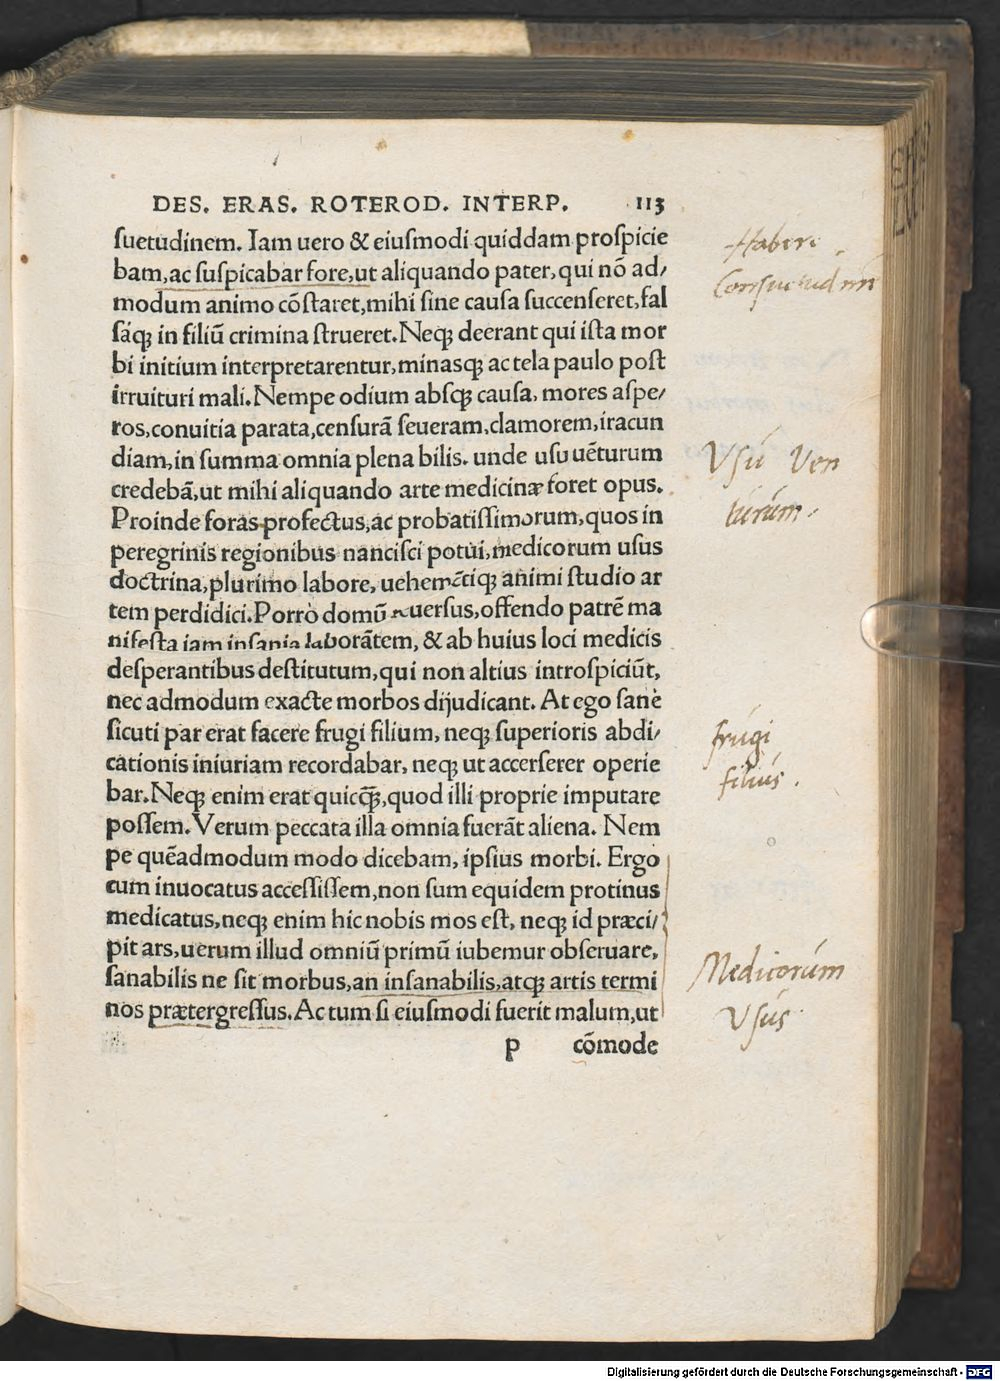 DES. ERAS. ROTEROD. INTERP. 113
suetudinem. Iam uero & eiusmodi quiddam prospicie
bam, ac suspicabar fore, ut aliquando pater, qui nō ad/
modum animo cōstaret, mihi sine causa succenseret, fal
sáq; in filiū crimina strueret. Neq; deerant qui ista mor
bi initium interpretarentur, minasq; ac tela paulo post
irruituri mali. Nempe odium absq; causa, mores aspe/
ros, conuitia parata, censurā seueram, clamorem, iracun
diam, in summa omnia plena bilis. unde usu uēturum
credebā, ut mihi aliquando arte medicinæ foret opus.
Proinde foras profectus, ac probatissimorum, quos in
peregrinis regionibus nancisci potui, medicorum usus
doctrina, plurimo labore, uehemētiq; animi studio ar
tem perdidici. Porrò domū reuersus, offendo patrē ma
nifesta iam insania laborātem, & ab huius loci medicis
desperantibus destitutum, qui non altius introspiciūt,
nec admodum exacte morbos dijudicant. At ego sanè
sicuti par erat facere frugi filium, neq; superioris abdi/
cationis iniuriam recordabar, neq; ut accerserer operie
bar. Neq; enim erat quicq̄;, quod illi proprie imputare
possem. Verum peccata illa omnia fuerāt aliena. Nem
pe quēadmodum modo dicebam, ipsius morbi. Ergo
cum inuocatus accessissem, non sum equidem protinus
medicatus, neq; enim hic nobis mos est, neq; id præci/
pit ars, uerum illud omniū primū iubemur obseruare,
sanabilis ne sit morbus, an insanabilis, atq; artis termi
nos prætergressus. Ac tum si eiusmodi fuerit malum, ut
p cōmode
Habere
Consuetudinē
Vsú Ven
túrúm.
frúgi
filiús.
Medicorúm
Vsús
Digitalisierung gefördert durch die Deutsche Forschungsgemeinschaft - DFG